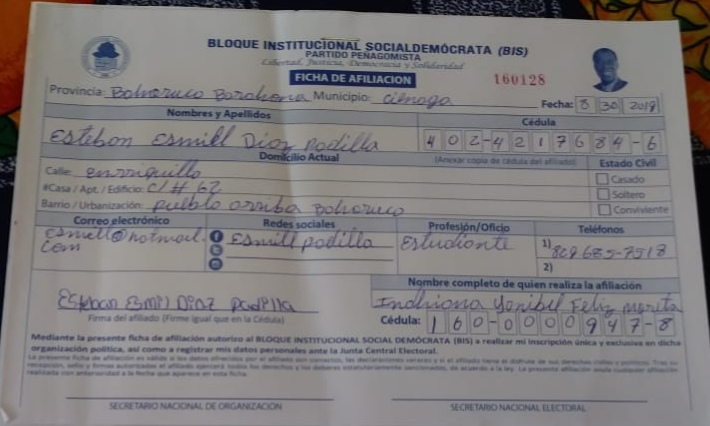 BLOQUE INSTITUCIONAL SOCIALDEMÓCRATA (BIS)
PARTIDO PEÑAGOMISTA
Libertad, Justicia, Democracia y Solidaridad
FICHA DE AFILIACION
160128
Provincia: Bahoruco Barahona Municipio: cienaga Fecha: 8 30 2019
Nombres y Apellidos
Cédula
Esteban Esmill Diaz Padilla 402-4217684-6
Domicilio Actual (Anexar copia de cédula del afiliado) Estado Civil
Calle: enrriquillo
Casado
#Casa / Apt. / Edificio: C/ # 62
Soltero
Barrio / Urbanización: pueblo arriba Bahoruco
Conviviente
Correo electrónico Redes sociales Profesión/Oficio Teléfonos
esmill@hotmail.com Esmill padilla Estudiante 1) 829 685-7518
2)
Nombre completo de quien realiza la afiliación
Esteban Esmil Diaz padilla Yanibel Feliz
Firma del afiliado (Firme igual que en la Cédula) Cédula: 160-0000947-8
Mediante la presente ficha de afiliación autorizo al BLOQUE INSTITUCIONAL SOCIAL DEMÓCRATA (BIS) a realizar mi inscripción única y exclusiva en dicha
organización política, así como a registrar mis datos personales ante la Junta Central Electoral.
SECRETARIO NACIONAL DE ORGANIZACIÓN SECRETARIO NACIONAL ELECTORAL